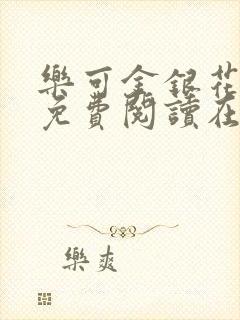 樂可金銀花
免費閱讀在
樂爽